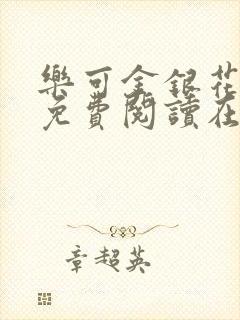 樂可金銀花
免費閱讀在
章超英